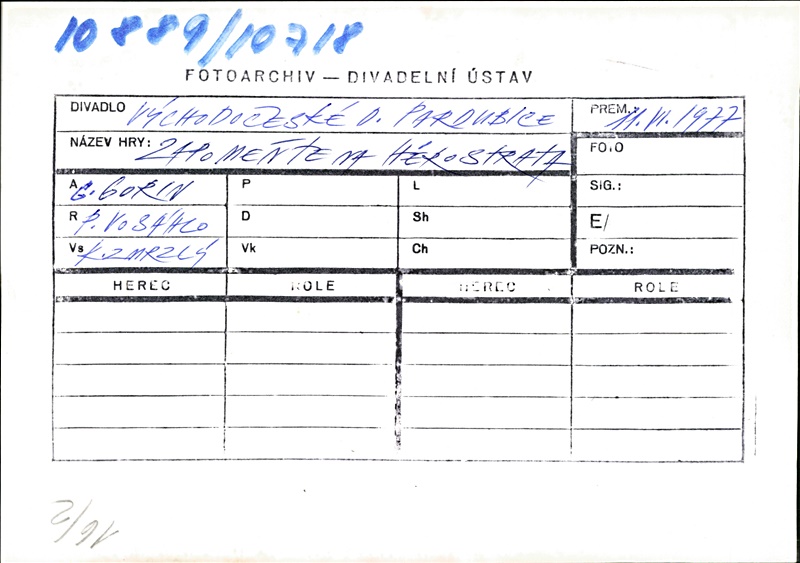 10889/10718
FOTOARCHIV — DIVADELNÍ ÚSTAV
DIVADLO VÝCHODOČESKÉ D. PARDUBICE PREM.: 11.VI.1977
NÁZEV HRY: ZAPOMEŇTE NA HÉROSTRATA FOTO
A G. GORIN P L SIG.:
R P. VOSÁHLO D Sh E/
Vs K. ZMRZLÝ Vk Ch POZN.:
HEREC ROLE HEREC ROLE
16/2